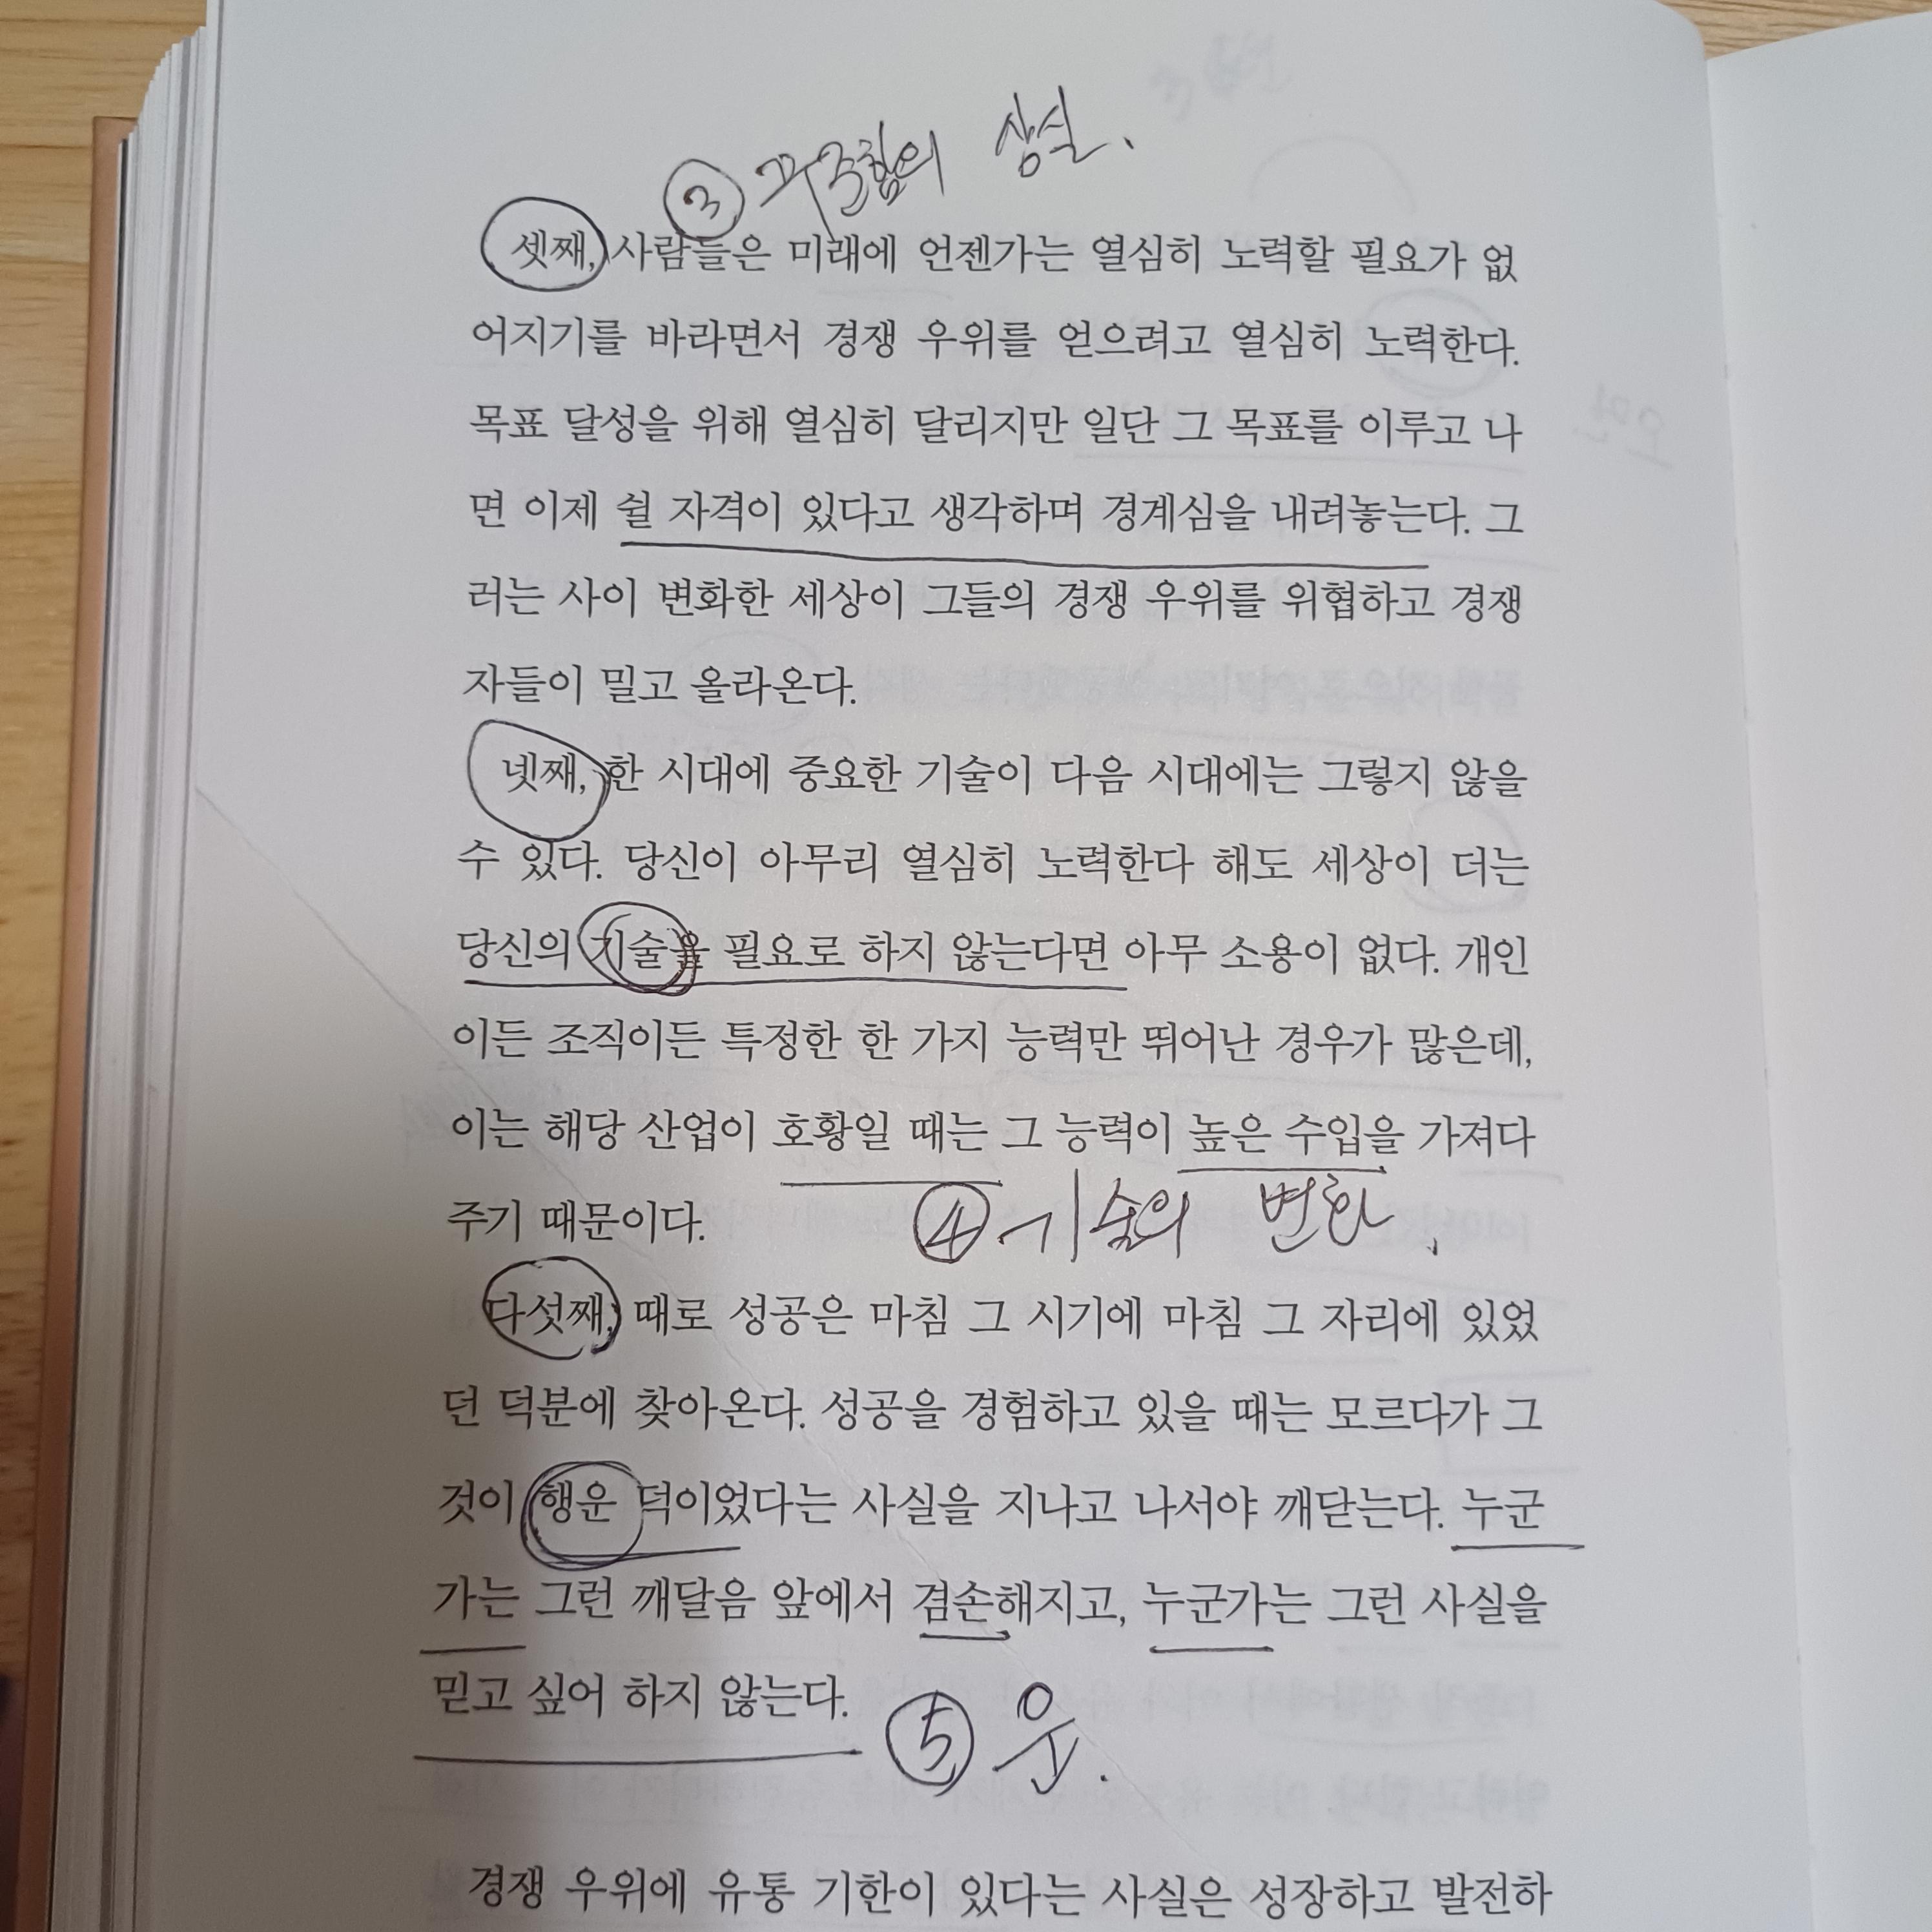 ③ 꾸준함의 상실.
셋째, 사람들은 미래에 언젠가는 열심히 노력할 필요가 없
어지기를 바라면서 경쟁 우위를 얻으려고 열심히 노력한다.
목표 달성을 위해 열심히 달리지만 일단 그 목표를 이루고 나
면 이제 쉴 자격이 있다고 생각하며 경계심을 내려놓는다. 그
러는 사이 변화한 세상이 그들의 경쟁 우위를 위협하고 경쟁
자들이 밀고 올라온다.
넷째, 한 시대에 중요한 기술이 다음 시대에는 그렇지 않을
수 있다. 당신이 아무리 열심히 노력한다 해도 세상이 더는
당신의 기술을 필요로 하지 않는다면 아무 소용이 없다. 개인
이든 조직이든 특정한 한 가지 능력만 뛰어난 경우가 많은데,
이는 해당 산업이 호황일 때는 그 능력이 높은 수입을 가져다
주기 때문이다.
④ 기술의 변화.
다섯째, 때로 성공은 마침 그 시기에 마침 그 자리에 있었
던 덕분에 찾아온다. 성공을 경험하고 있을 때는 모르다가 그
것이 행운 덕이었다는 사실을 지나고 나서야 깨닫는다. 누군
가는 그런 깨달음 앞에서 겸손해지고, 누군가는 그런 사실을
믿고 싶어 하지 않는다.
⑤ 운.
경쟁 우위에 유통 기한이 있다는 사실은 성장하고 발전하